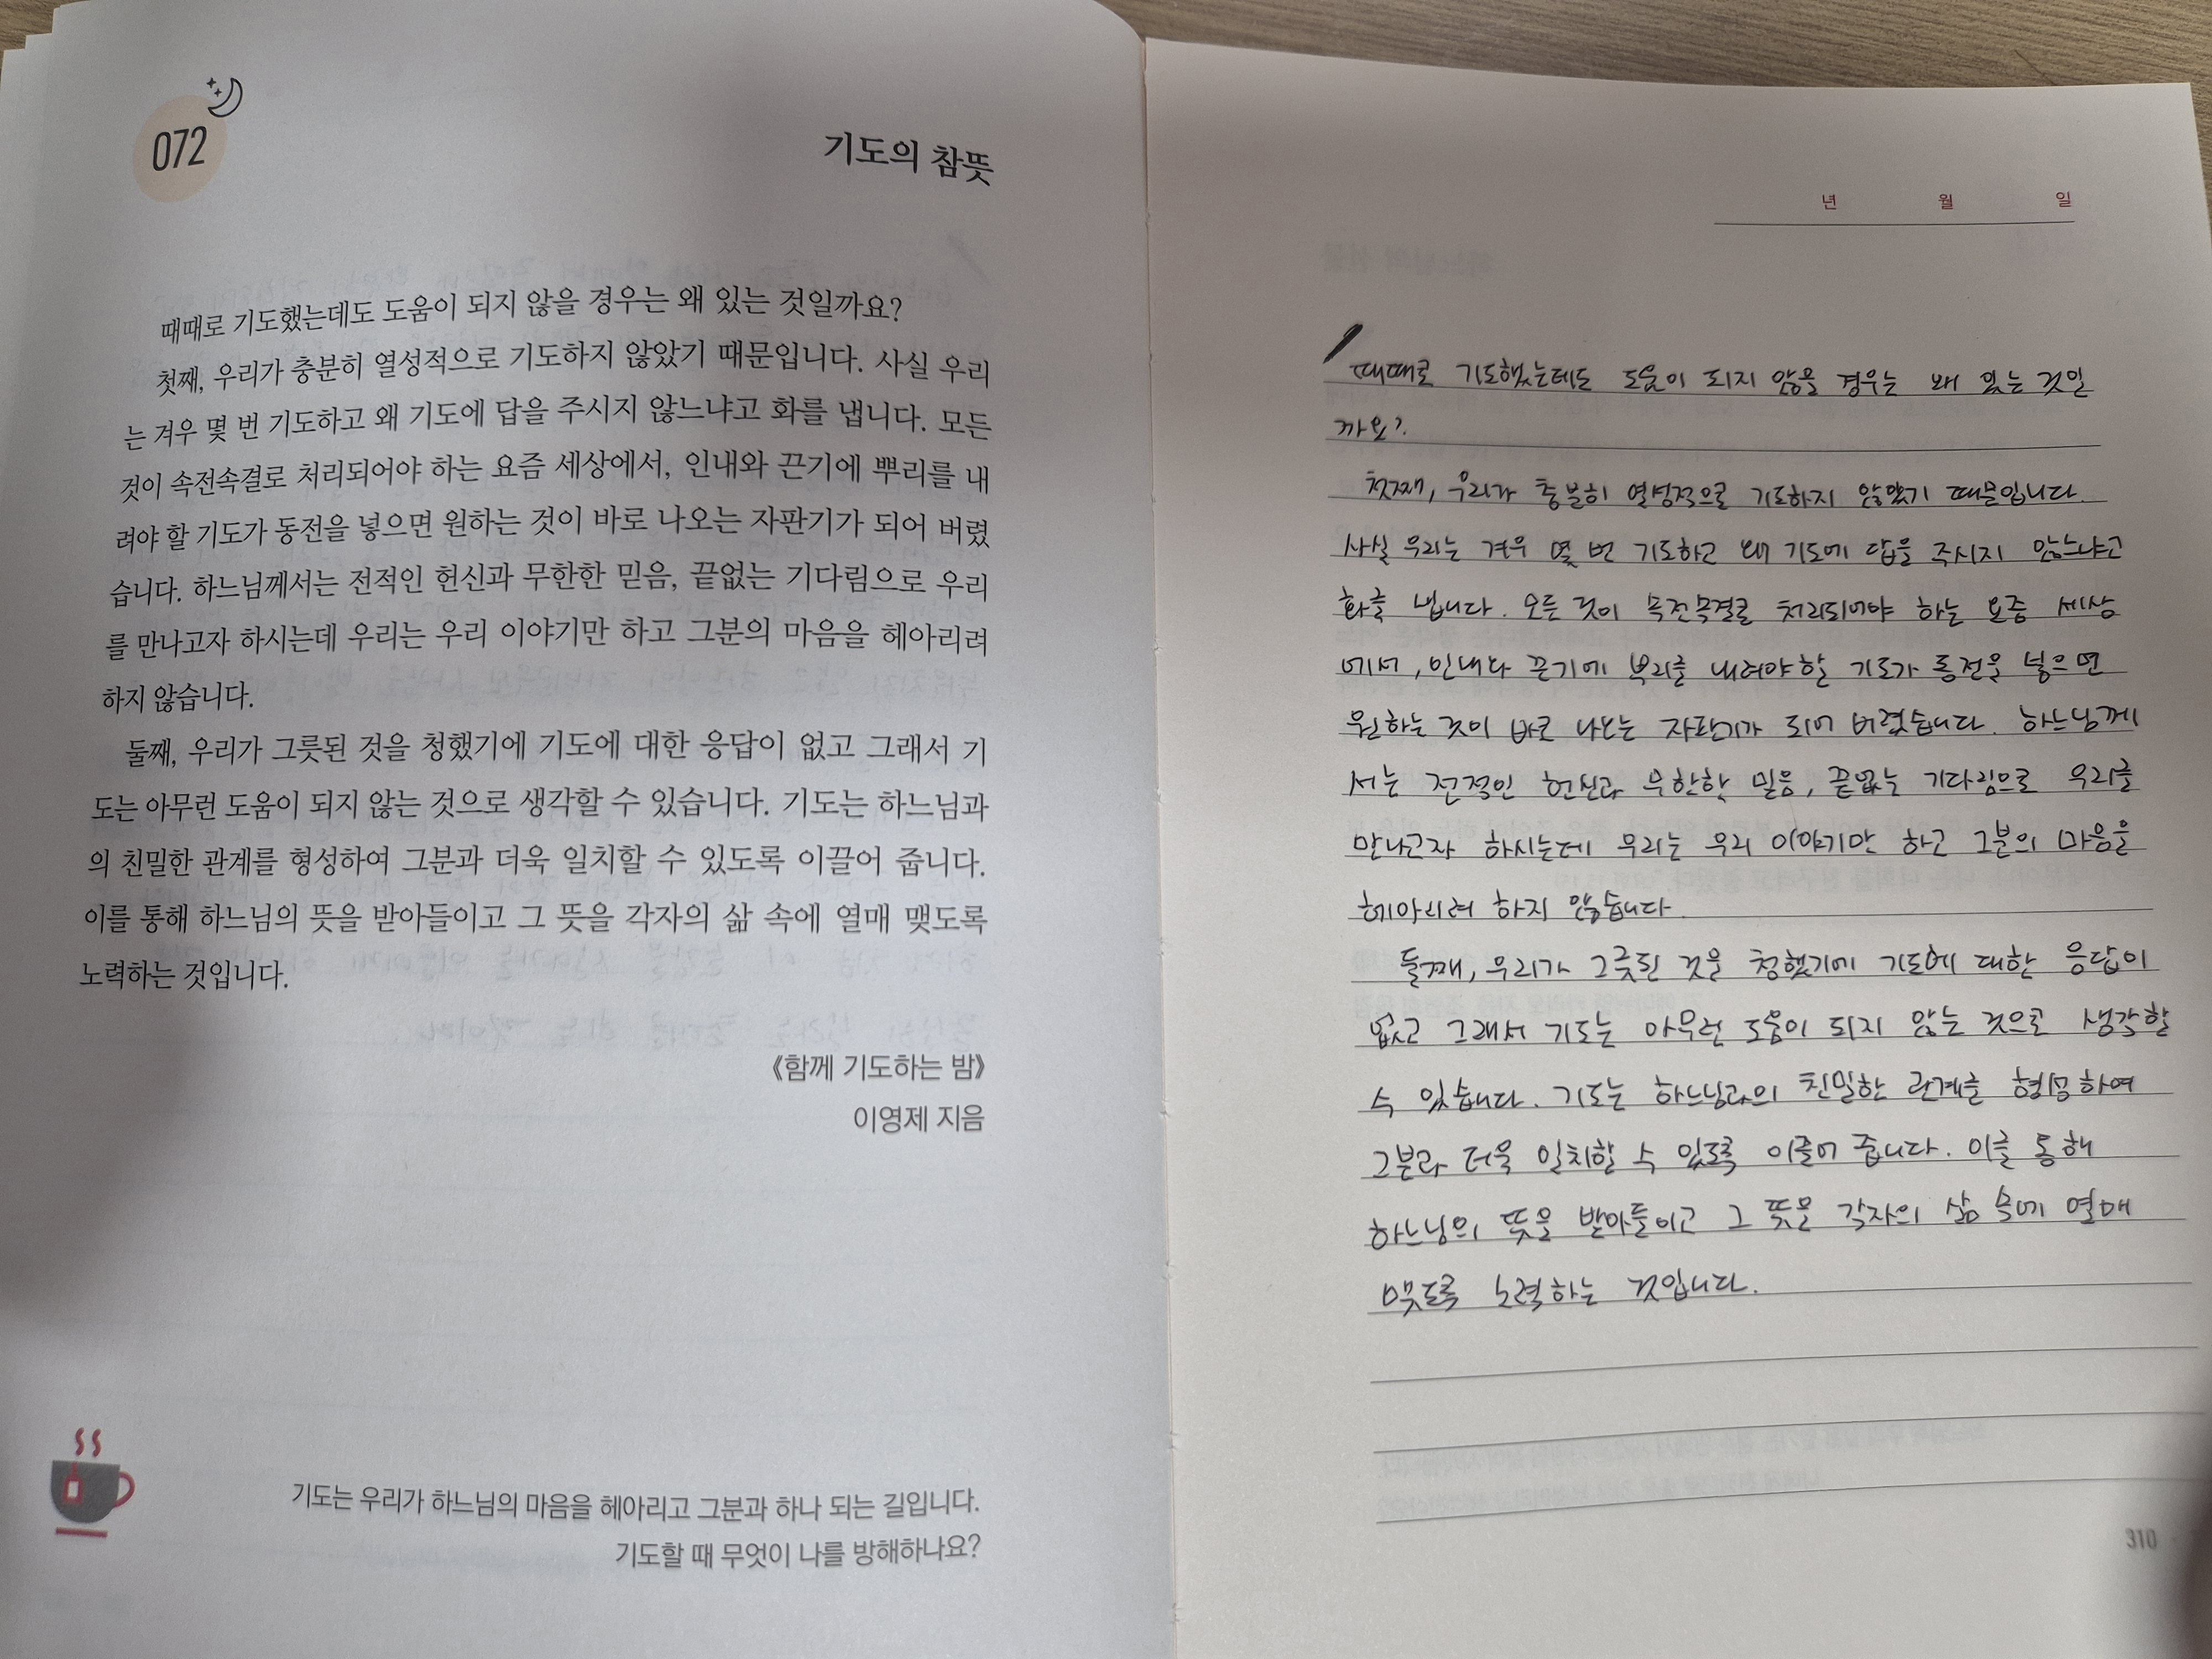 072
기도의 참뜻
때때로 기도했는데도 도움이 되지 않을 경우는 왜 있는 것일까요?
첫째, 우리가 충분히 열성적으로 기도하지 않았기 때문입니다. 사실 우리
는 겨우 몇 번 기도하고 왜 기도에 답을 주시지 않느냐고 화를 냅니다. 모든
것이 속전속결로 처리되어야 하는 요즘 세상에서, 인내와 끈기에 뿌리를 내
려야 할 기도가 동전을 넣으면 원하는 것이 바로 나오는 자판기가 되어 버렸
습니다. 하느님께서는 전적인 헌신과 무한한 믿음, 끝없는 기다림으로 우리
를 만나고자 하시는데 우리는 우리 이야기만 하고 그분의 마음을 헤아리려
하지 않습니다.
둘째, 우리가 그릇된 것을 청했기에 기도에 대한 응답이 없고 그래서 기
도는 아무런 도움이 되지 않는 것으로 생각할 수 있습니다. 기도는 하느님과
의 친밀한 관계를 형성하여 그분과 더욱 일치할 수 있도록 이끌어 줍니다.
이를 통해 하느님의 뜻을 받아들이고 그 뜻을 각자의 삶 속에 열매 맺도록
노력하는 것입니다.
《함께 기도하는 밤》
이영제 지음
기도는 우리가 하느님의 마음을 헤아리고 그분과 하나 되는 길입니다.
기도할 때 무엇이 나를 방해하나요?
년 월 일
때때로 기도했는데도 도움이 되지 않을 경우는 왜 있는 것일
까요?
첫째, 우리가 충분히 열성적으로 기도하지 않았기 때문입니다.
사실 우리는 겨우 몇 번 기도하고 왜 기도에 답을 주시지 않느냐고
화를 냅니다. 모든 것이 속전속결로 처리되어야 하는 요즘 세상
에서, 인내와 끈기에 뿌리를 내려야 할 기도가 동전을 넣으면
원하는 것이 바로 나오는 자판기가 되어 버렸습니다. 하느님께
서는 전적인 헌신과 무한한 믿음, 끝없는 기다림으로 우리를
만나고자 하시는데 우리는 우리 이야기만 하고 그분의 마음을
헤아리려 하지 않습니다.
둘째, 우리가 그릇된 것을 청했기에 기도에 대한 응답이
없고 그래서 기도는 아무런 도움이 되지 않는 것으로 생각할
수 있습니다. 기도는 하느님과의 친밀한 관계를 형성하여
그분과 더욱 일치할 수 있도록 이끌어 줍니다. 이를 통해
하느님의 뜻을 받아들이고 그 뜻을 각자의 삶 속에 열매
맺도록 노력하는 것입니다.
310